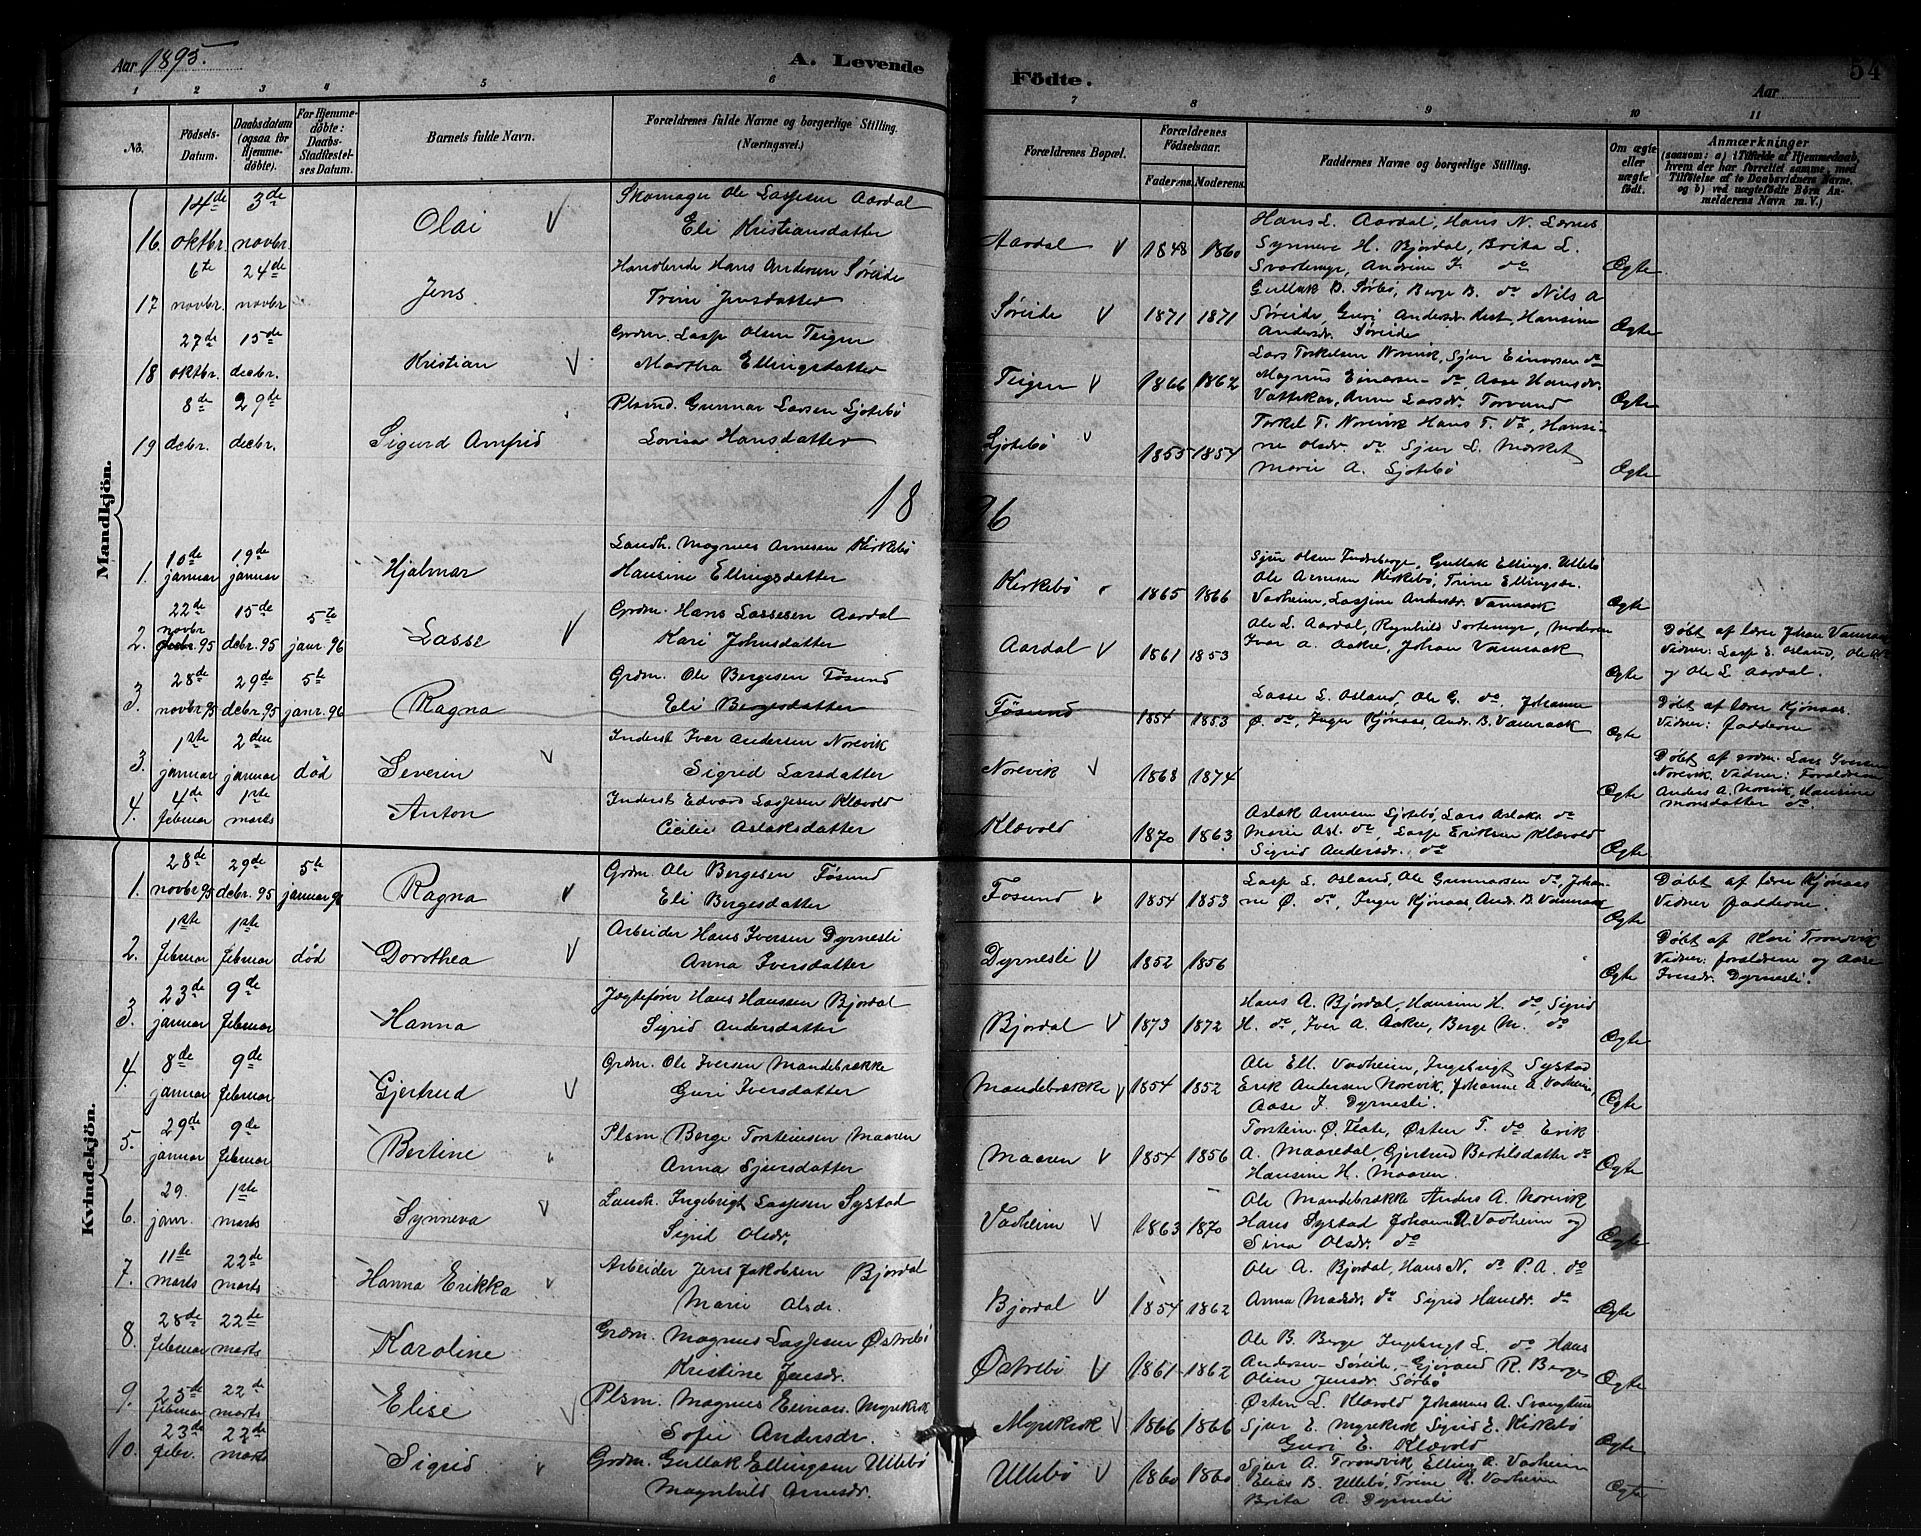 Aar 1895.
A. Levende
Födte.
Aar
54
1 2 3 4 5 6 7 8 9 10 11
No.
Födsels-Datum.
Daabsdatum (ogsaa for Hjemmedöbte).
For Hjemmedöbte: Daabs-Stadfæstelses Datum.
Barnets fulde Navn.
Forældrenes fulde Navne og borgerlige Stilling. (Næringsvei.)
Forældrenes Bopæl.
Forældrenes Födselsaar.
Faderens. Moderens.
Faddernes Navne og borgerlige Stilling.
Om ægte eller uægte födt.
Anmærkninger (saasom: a) i Tilfælde af Hjemmedaab, hvem der har forrettet samme, med Tilföielse af to Daabsvidners Navne, og b) ved uægtefödte Börn Anmelderens Navn m. V.)
Mandkjön.
16. 14de oktbr. 3de novbr. Olai Skomager Ole Lassesen Aardal Eli Kristiansdatter Aardal 1848 1860 Hans L. Aardal, Hans N. Synneve H. Bjordal, Brita L. Svartemyr, Andrine J. do Ægte
17 6te novbr 24de novbr Jens Hans Andersen Søreide Trine Jensdatter Søreide 1871 1871 Gullak B. Sørbø, Berge B. do Nils A Søreide, Guri Andersdr. Hansine Andersdr. Søreide Ægte
18 27de oktbr. 15de decbr. Kristian Grdm. Lasse Olsen Teigen Martha Ellingsdatter Teigen 1866 1862 Lars Torkelsen Norevik, Sjur Einarsen do Magnus Einarsen do, Aase Hansdr. Vattekar, Anne Larsdr. Torvund Ægte
19 8de decbr. 29de decbr. Sigurd Arnfrid Plsmd. Gunnar Larsen Ljotebø Lovisa Hansdatter Ljotebø 1855 1854 Torkel T. Norevik Hans T. do, Hansine Olsdr. do Sjur L. Mærket Marie A. Ljotebø Ægte
18 96
1. 10de januar 19de januar Hjalmar Landh. Magnus Arnesen Kirkebø Hansine Ellingsdatter Kirkebø 1865 1866 Sjur Olsen Indreberge, Gullak Ellings. Ullebø Ole Arnesen Kirkebø, Trine Ellingsdr. Vadheim, Lassine Andersdr. Vamraak Ægte
2. 22de novbr 95 15de decbr. 95 5te janr. 96 Lasse Grdm. Hans Lassesen Aardal Kari Johnsdatter Aardal 1861 1853 Ole L. Aardal, Rognhild Sortemyr, Moderen Ivar A. Aakre, Johan Vamraak Ægte Døbt af lærer Johan Vamraak Vidner: Lasse E. Osland, Ole og Ole L. Aardal.
3. 28de novbr 95 29de decbr. 95 5te janr. 96 Ragna Grdm. Ole Bergesen Føsund Eli Bergesdatter Føsund 1854 1853 Lasse L. Osland, Ole G. do, Johanne Ø. do, Inger Kjønaas, Andr. B. Vamraak Ægte Døbt af lærer Kjønaas. Vidner: fadderne
3. 1ste januar 2den januar død Severin Inderst Ivar Andersen Norevik Sigrid Larsdatter Norevik 1868 1874 Ægte Døbt af grdm. Lars Iversen Norevik. Vidner: Forældrene Anders A. Norevik, Hansine Monsdatter do.
4. 4de februar 1ste marts Anton Inderst Edvard Lassesen Klævold Cicilie Aslaksdatter Klævold 1870 1863 Aslak Arnesen Ljotebø, Lars Aslaks. do Marie Asl. do, Lasse Eriksen Klævold Sigrid Andersdr. do Ægte
Kvindekjön.
1. 28de novbr 95 29de decbr. 95 5te januar 96 Ragna Grdm. Ole Bergesen Føsund Eli Bergesdatter Føsund 1854 1853 Lasse L. Osland, Ole Gunnarsen do Johanne Ø. do, Inger Kjønaas, Andr. B. Vamraak Ægte Døbt af lærer Kjønaas Vidner fadderne.
2. 1ste februar 1ste februar død Dorothea Arbeider Hans Iversen Dyrnesli Anna Iversdatter Dyrnesli 1852 1856 Ægte Døbt af Kari Trondvik Vidner: forældrene og Aase Iversdr. Dyrnesli.
3. 23de januar 9de februar Hanna Jægtefører Hans Hanssen Bjordal Sigrid Andersdatter Bjordal 1873 1872 Hans A. Bjordal, Hansine H. do, Sigrid H. do, Iver A. Aakre, Berge M. do Ægte
4. 8de januar 9de februar Gjertrud Grdm. Ole Iversen Mandebrække Guri Iversdatter Mandebrække 1854 1852 Ole Ell. Vadheim, Ingebrigt Systad Erik Andersen Norevik, Johanne A. Vadheim, Aase J. Dyrnesli. Ægte
5. 29de januar 9de februar Bertine Plsm. Berge Torsteinsen Maaren Anna Sjursdatter Maaren 1854 1856 Torstein Ø. Flate, Østen T. do Erik A. Maaredal, Gjertrud Bertilsdatter do Hansine H. Maaren Ægte
6. 29. janr. 1ste marts Synneva Landh. Ingebrigt Lassesen Systad Sigrid Olsdr. Vadheim 1863 1870 Ole Mandebrække Anders A. Norevik Hans Systad Johanne A. Vadheim og Sina Olsdr. do Ægte
7. 11te marts 22de marts Hanna Erikka Arbeider Jens Jakobsen Bjordal Marie Olsdr. Bjordal 1854 1862 Ole A. Bjordal, Hans N. do P. A. do Anna Madsdr. do Sigrid Hansdr. do Ægte
8. 28de februar 22de marts Karoline Grdm. Magnus Lassesen Østrebø Kristine Jensdr. Østrebø 1861 1862 Ole B. Berge Ingebrigt L. do Hans Andersen Søreide, Gjøraud R. Berge Oline Jensdr. Sørbø Ægte
9. 25de februar 22de marts Elise Plsm. Magnus Einars. Myrekrok Sofie Andersdr. Myrekrok 1866 1866 Østen L. Klævold Johannes A. Svangtun Sjur E. Myrekrok Sigrid E. Kirkebø Guri E. Klævold Ægte
10. 23de febr. 22de marts Sigrid Grdm. Gullak Ellingsen Ullebø Magnhild Arnesdr. Ullebø 1860 1860 Sjur A. Trondvik Elling A. Vadheim Elias B. Ullebø Trine R. Vadheim Brita A. Dyrnesli Ægte